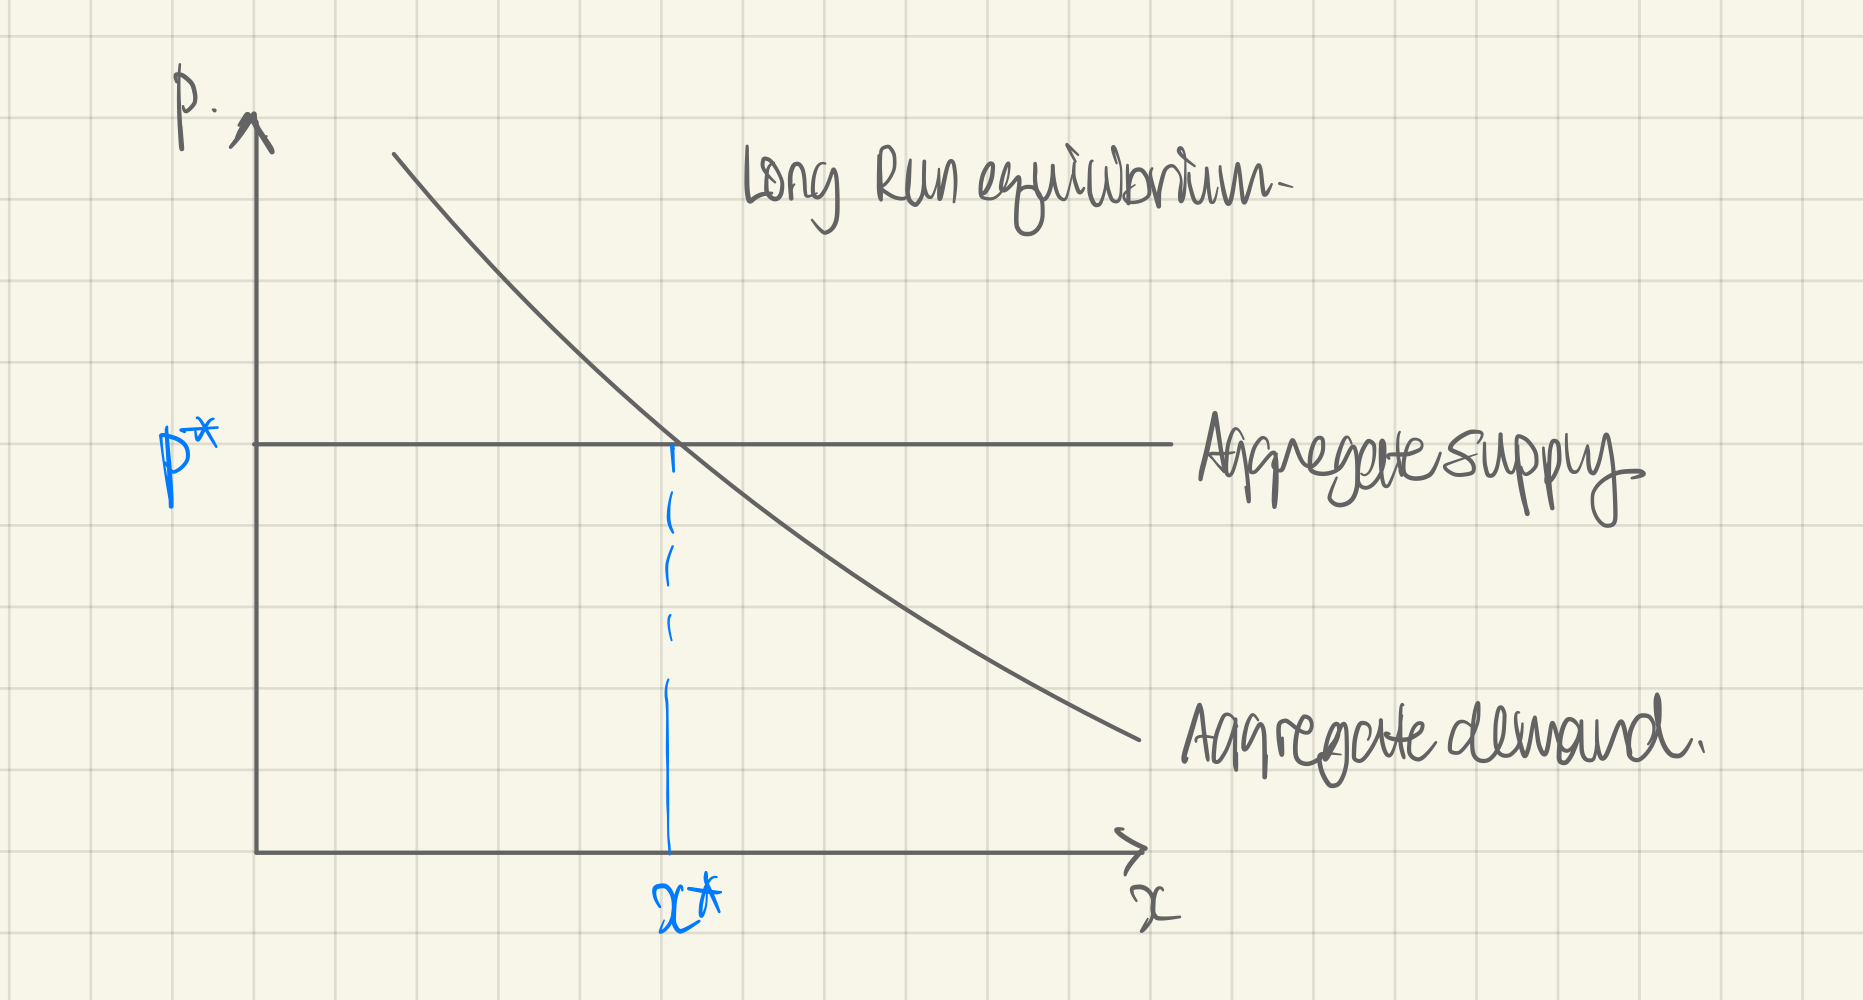 p.
Long Run equilibrium.
p*
Aggregate supply
Aggregate demand.
x*
x